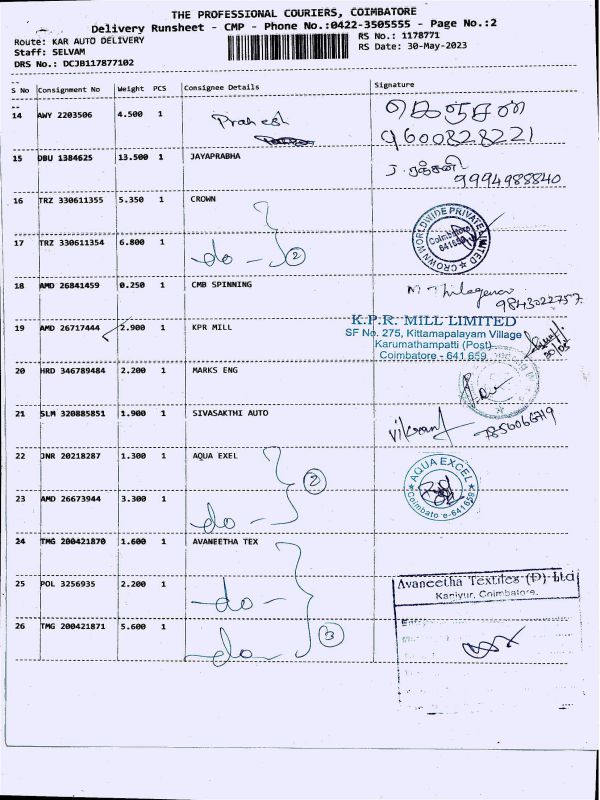 THE PROFESSIONAL COURIERS, COIMBATORE
Delivery Runsheet - CMP - Phone No.:0422-3505555 - Page No.:2
Route: KAR AUTO DELIVERY RS No.: 1178771
Staff: SELVAM RS Date: 30-May-2023
DRS No.: DCJB117877102
S No Consignment No Weight PCS Consignee Details Signature
14 AWY 2203506 4.500 1 Prakesh
9600828221
15 DBU 1384625 13.500 1 JAYAPRABHA
9994988840
16 TRZ 330611355 5.350 1 CROWN
CROWN WORLDWIDE PRIVATE LIMITED
Coimbatore
641659
17 TRZ 330611354 6.800 1 -do- 2
18 AMD 26841459 0.250 1 CMB SPINNING
9843022757
19 AMD 26717444 2.900 1 KPR MILL
K.P.R. MILL LIMITED
SF No. 275, Kittamapalayam Village
Karumathampatti (Post)
Coimbatore - 641 659
20 HRD 346789484 2.200 1 MARKS ENG
21 SLM 320885851 1.900 1 SIVASAKTHI AUTO
Vikrant
22 JNR 20218287 1.300 1 AQUA EXEL
AQUA EXCEL
Coimbatore-641659
23 AMD 26673944 3.300 1 -do- 2
24 TMG 200421870 1.600 1 AVANEETHA TEX
25 POL 3256935 2.200 1 -do-
Avaneetha Textiles (P) Ltd
Kaniyur, Coimbatore.
26 TMG 200421871 5.600 1 -do- 3